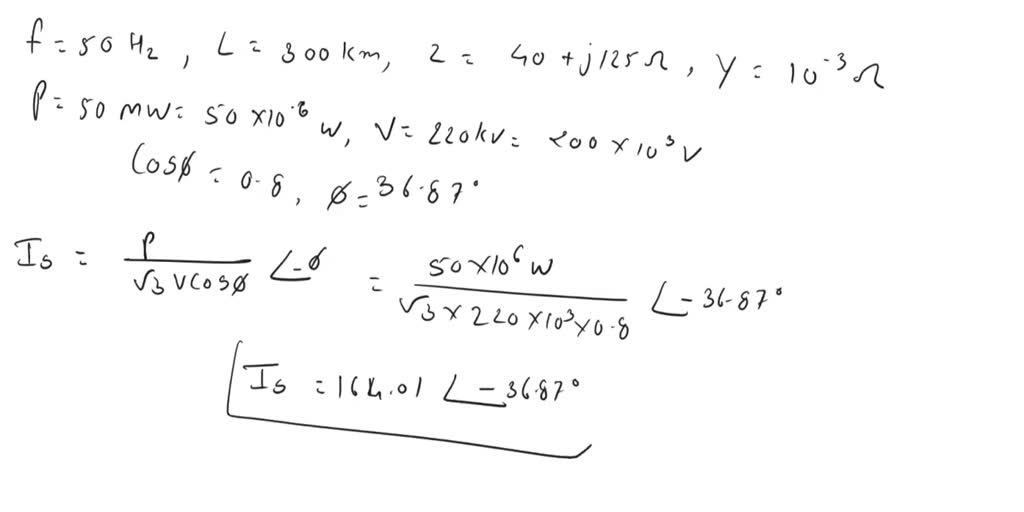 f = 50 Hz, L = 300 km, Z = 40 + j125 Ω, Y = 10⁻³ Ω
P = 50 MW = 50 × 10⁻⁶ W, V = 220 kV = 200 × 10³ V
Cosϕ = 0.8, ϕ = 36.87°
Is = P / √3 V Cosϕ ∠-ϕ = 50 × 10⁶ W / √3 × 220 × 10³ × 0.8 ∠-36.87°
Is = 164.01 ∠-36.87°